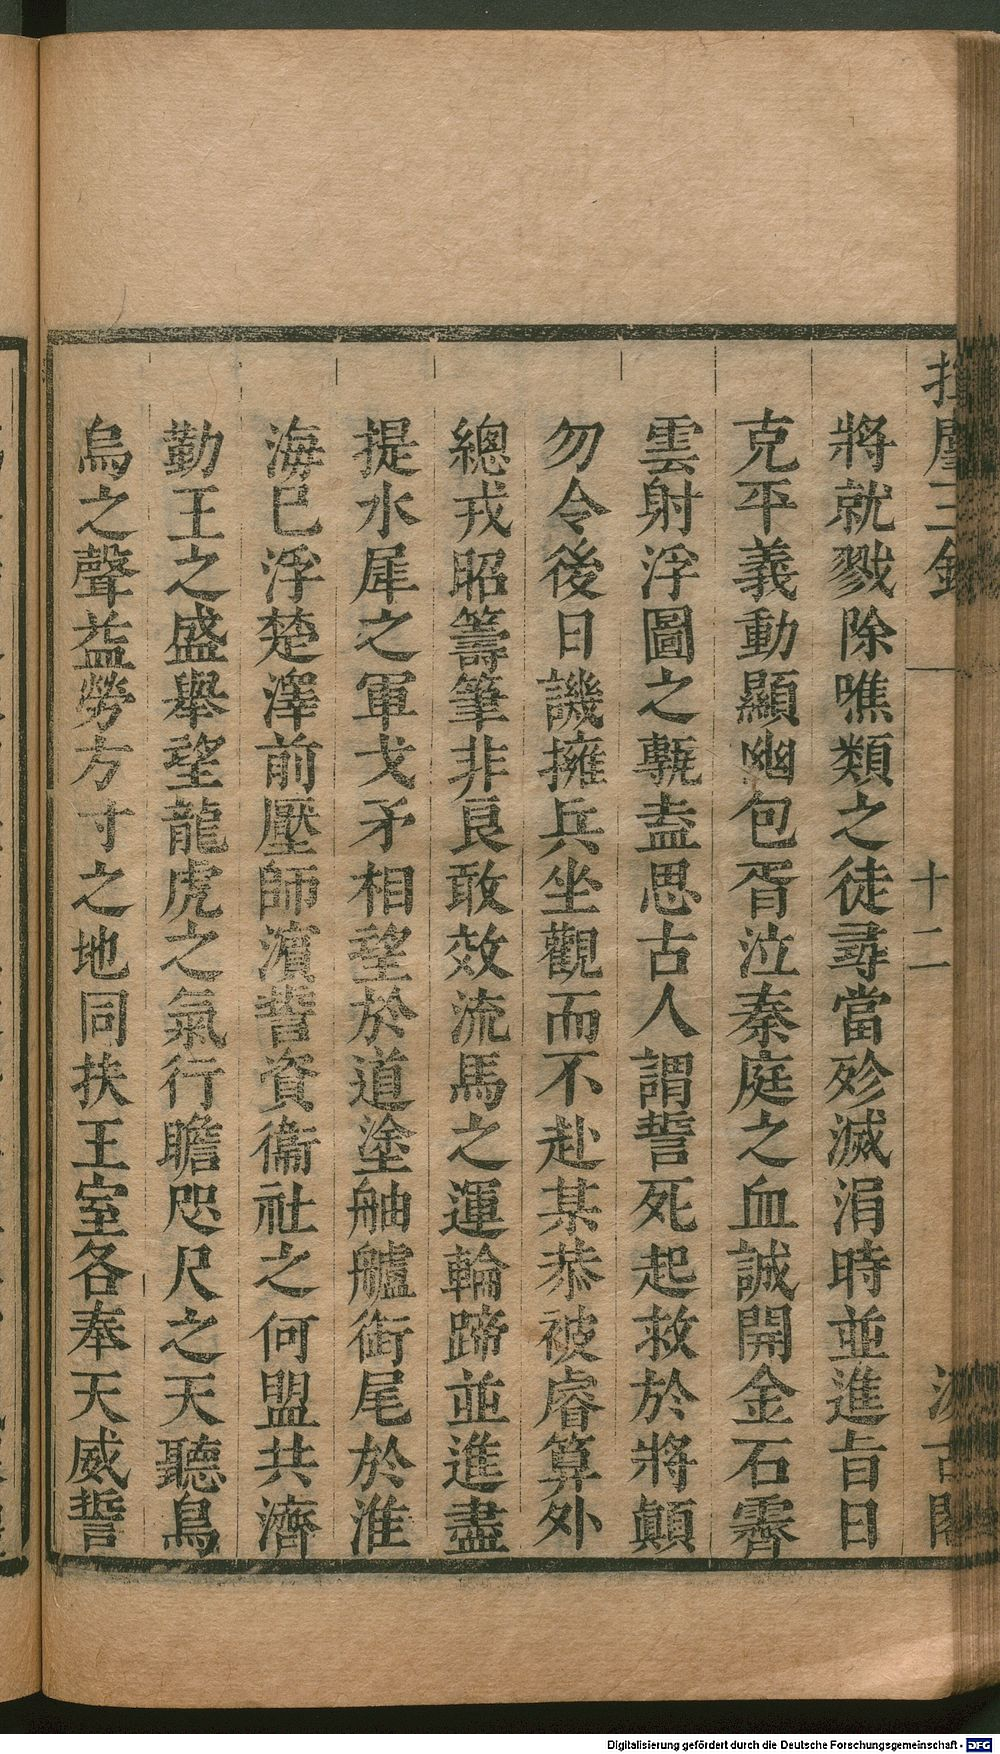 將就戮除噍類之徒尋當殄滅涓時並進旨日
克平義動顯幽包胥泣秦庭之血誠開金石霽
雲射浮圖之甎盍思古人謂誓死起救於將顛
勿令後日譏擁兵坐觀而不赴某恭被睿算外
總戎昭籌筆非良敢效流馬之運輪蹄並進盡
提水犀之軍戈矛相望於道塗舳艫銜尾於淮
海已浮楚澤前壓師濱誓資衞社之何盟共濟
勤王之盛舉望龍虎之氣行瞻咫尺之天聽鳥
烏之聲益勞方寸之地同扶王室各奉天威誓
十二
Digitalisierung gefördert durch die Deutsche Forschungsgemeinschaft - DFG